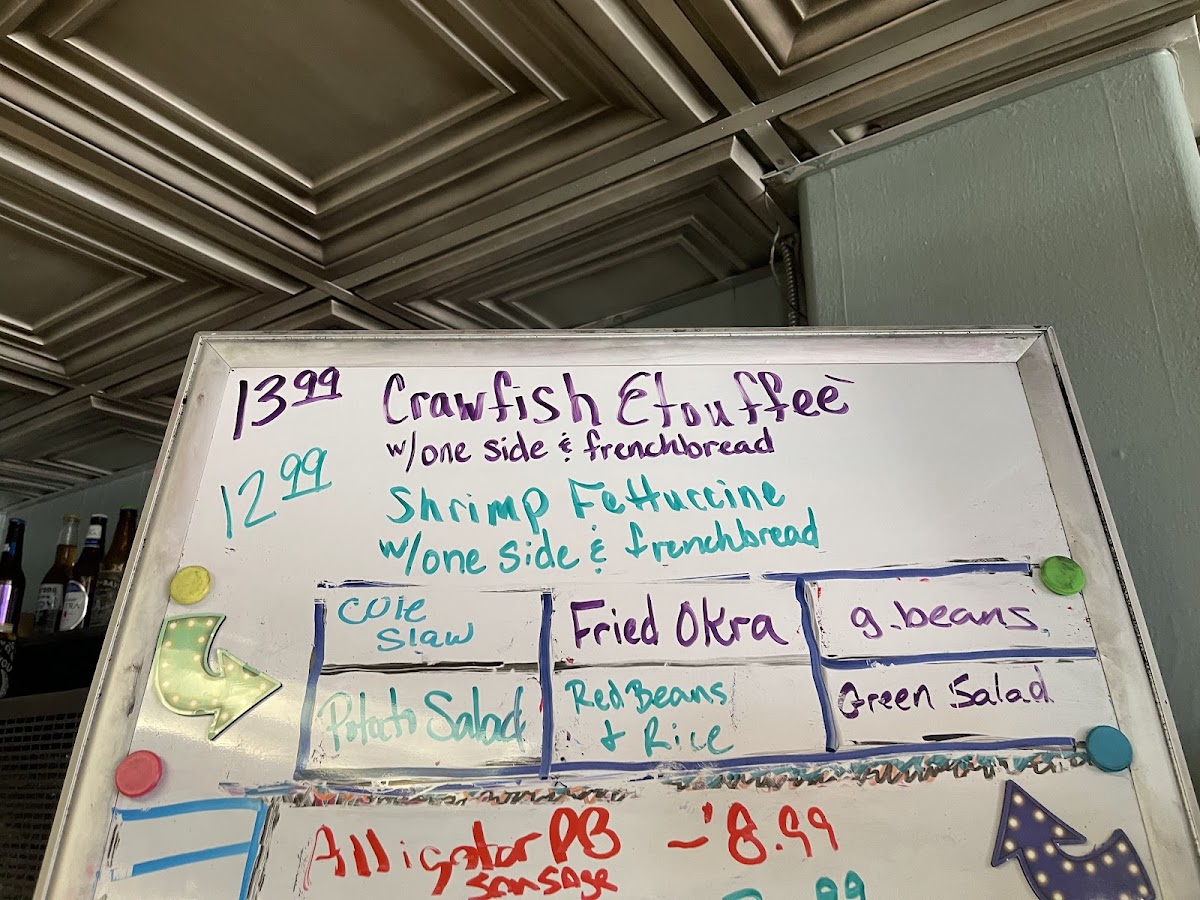 13 99 Crawfish Etouffeè
w/one side & frenchbread
12 99 Shrimp Fettuccine
w/one side & frenchbread
Cole
Slaw
Fried Okra
g.beans
Potato Salad
Red Beans
+ Rice
Green Salad
Alligator PB - 8.99
sausage
.99